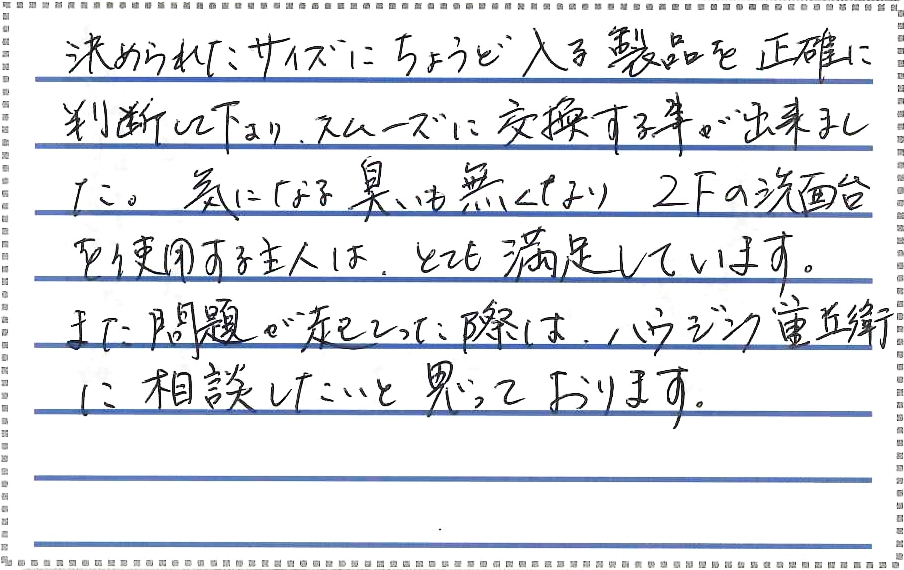 決められたサイズにちょうど入る製品を正確に
判断して下さり、スムーズに交換する事が出来まし
た。気になる臭いも無くなり 2Fの洗面台
を使用する主人は、とても満足しています。
また問題が起こった際は、ハウジング重兵衛
に相談したいと思っております。